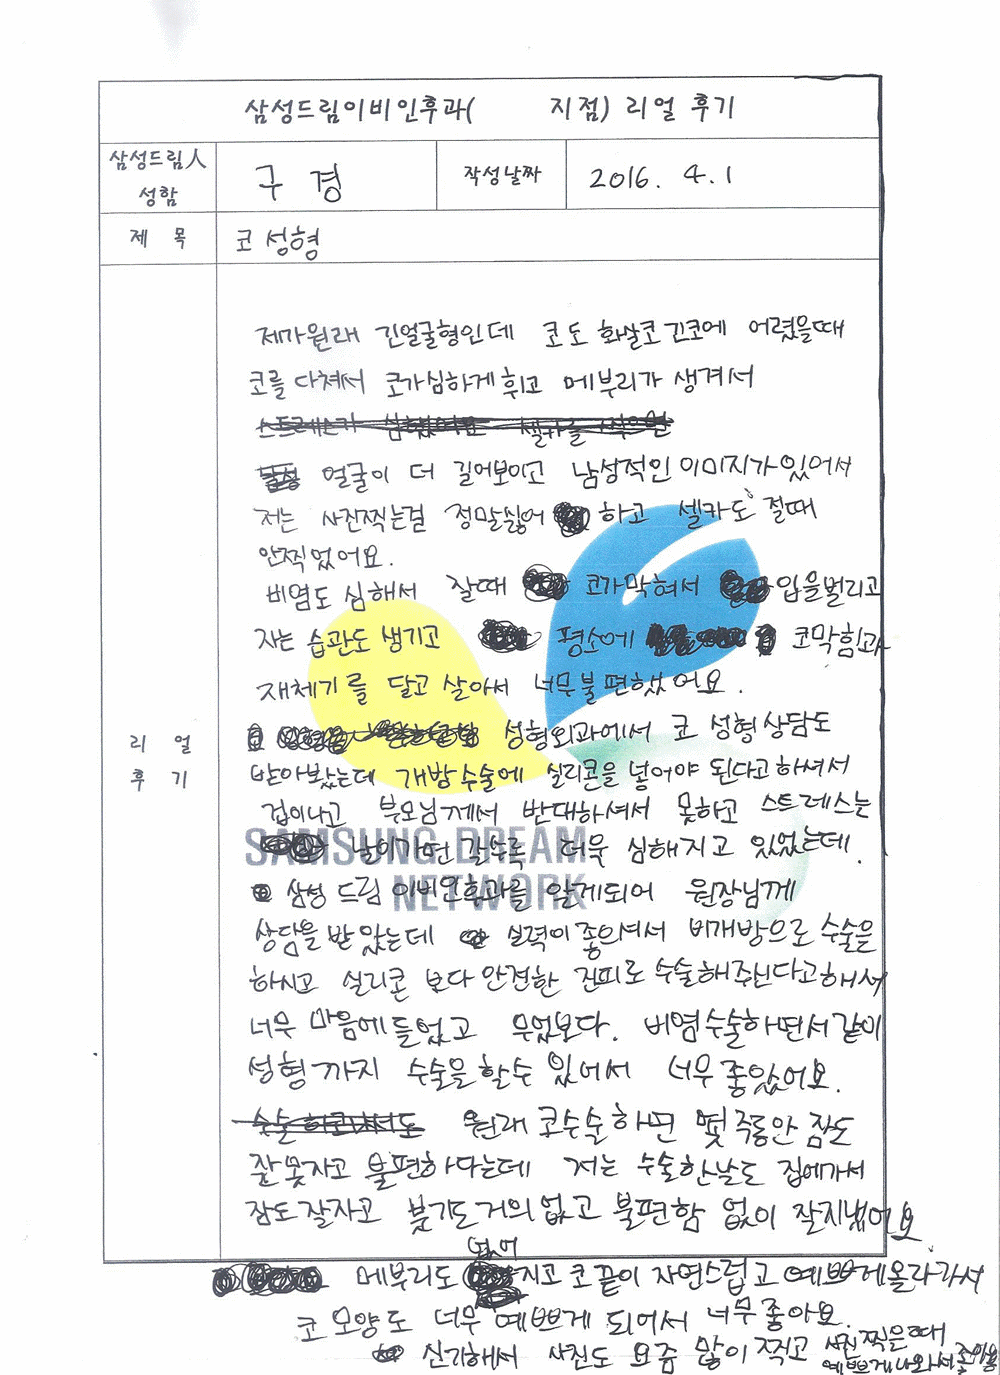 삼성드림이비인후과(      지점) 리얼 후기
삼성드림人 성함
구 경
작성날짜
2016. 4. 1
제 목
코 성형
제가원래 긴얼굴형인데 코도 화살코 긴코에 어렸을때
코를 다쳐서 코가심하게 휘고 메부리가 생겨서
얼굴이 더 길어보이고 남성적인 이미지가있어서
저는 사진찍는걸 정말싫어 하고 셀카도 절때
안찍었어요.
비염도 심해서 잘때 코가막혀서 입을벌리고
자는 습관도 생기고 평소에 코막힘과
재체기를 달고 살아서 너무불편했어요.
리 얼
후 기
성형외과에서 코 성형상담도
받아봤는데 개방수술에 실리콘을 넣어야 된다고하셔서
겁이나고 부모님께서 반대하셔서 못하고 스트레스는
날이가면 갈수록 더욱 심해지고 있었는데.
SAMSUNG DREAM
NETWORK
삼성 드림 이비인후과를 알게되어 원장님께
상담을 받았는데 실력이 좋으셔서 비개방으로 수술을
하시고 실리콘 보다 안전한 진피로 수술해주신다고해서
너무 마음에들었고 무었보다. 비염수술하면서같이
성형까지 수술을 할수 있어서 너무좋았어요.
원래 코수술하면 몇주동안 잠도
잘못자고 불편하다는데 저는 수술한날도 집에가서
잠도잘자고 붓기도거의없고 불편함 없이 잘지냈어요
메부리도 없어지고 코끝이 자연스럽고 예쁘게올라가서
코모양도 너무 예쁘게 되어서 너무좋아요.
신기해서 사진도 요즘 많이 찍고 사진찍을때
예쁘게나와서좋아용